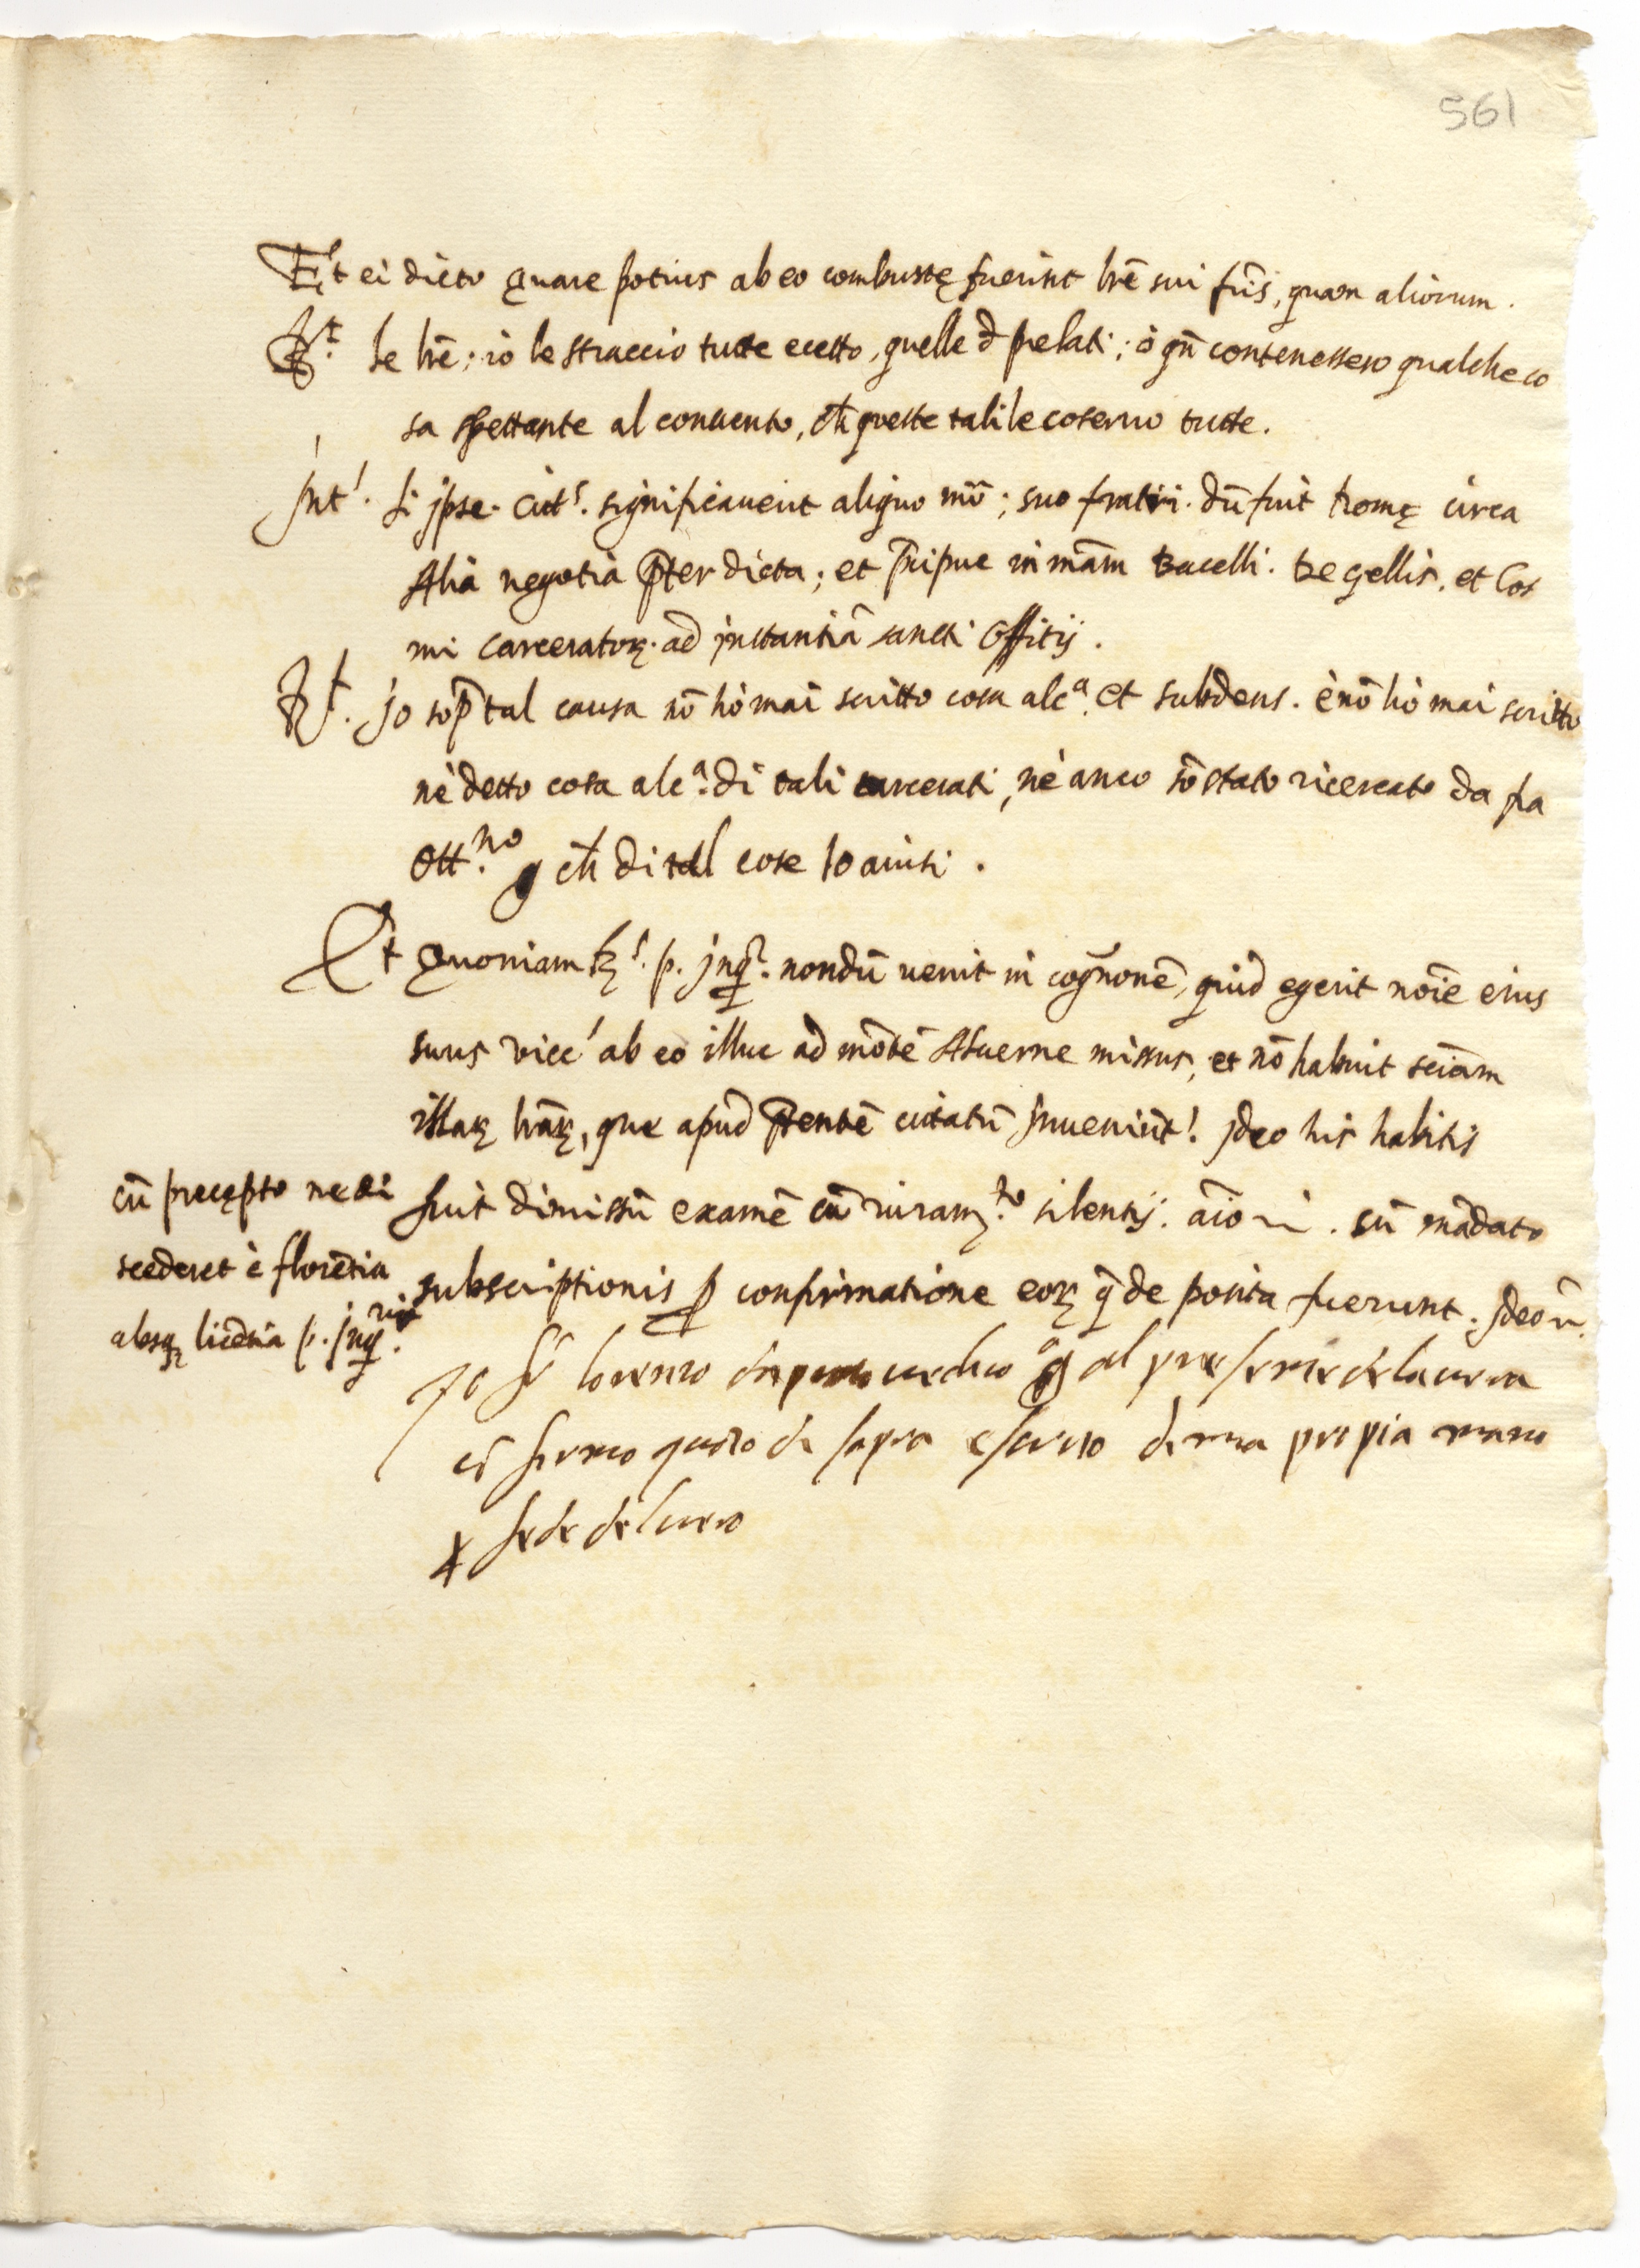 561
Et ei dicto quare potius ab eo combustę fuerint lrē sui fr̄is, quam aliorum.
Rt. le lrē; io le straccio tutte ecetto, quelle d̄ prelati; ò qn̄ contenessero qualche co
sa spettante al conuento, ch̄ queste tali le coseruo tutte.
Int!. si jpse. Citt!. significauerit aliquo mō; suo fratri. dū fuit Romę circa
Alia negotia p̄ter dicta; et p̄cipue in mām Bacelli. de gellis. et Cos
mi carceratorꝝ. ad jnstantiā sancti Offitij.
Rt. jo sop̄ tal causa nō hò mai scritto cosa alc.ª et subdens. è nō hò mai scritto
nè detto cosa alc.ª di tali carcerati, nè anco sō stato ricercato da fra
Ott.no ch̄ di tal cose lo auisi.
Et Quoniam p. jnqr. nondū uenit in cog̃nonē, quid egerit noīe eius
suus vicc! ab eo illuc ad mōtē Aluerne missus, et nō habuit sciām
illaꝝ lrāꝝ, que apud p̄sentē citatū jnueniūt!. jdeo his habitis
cū precępto ne di
fuit dimissū examē cū iuram.to silentij. cū mādato
scederet è florētia
subscriptionis ꝓ confirmatione eoꝝ q̄ de posita fuerunt. jdeo
absqꝫ licētia p. jnq.ris
Io fr lorenzo
cō fermo quato di sopra di mia propia mano